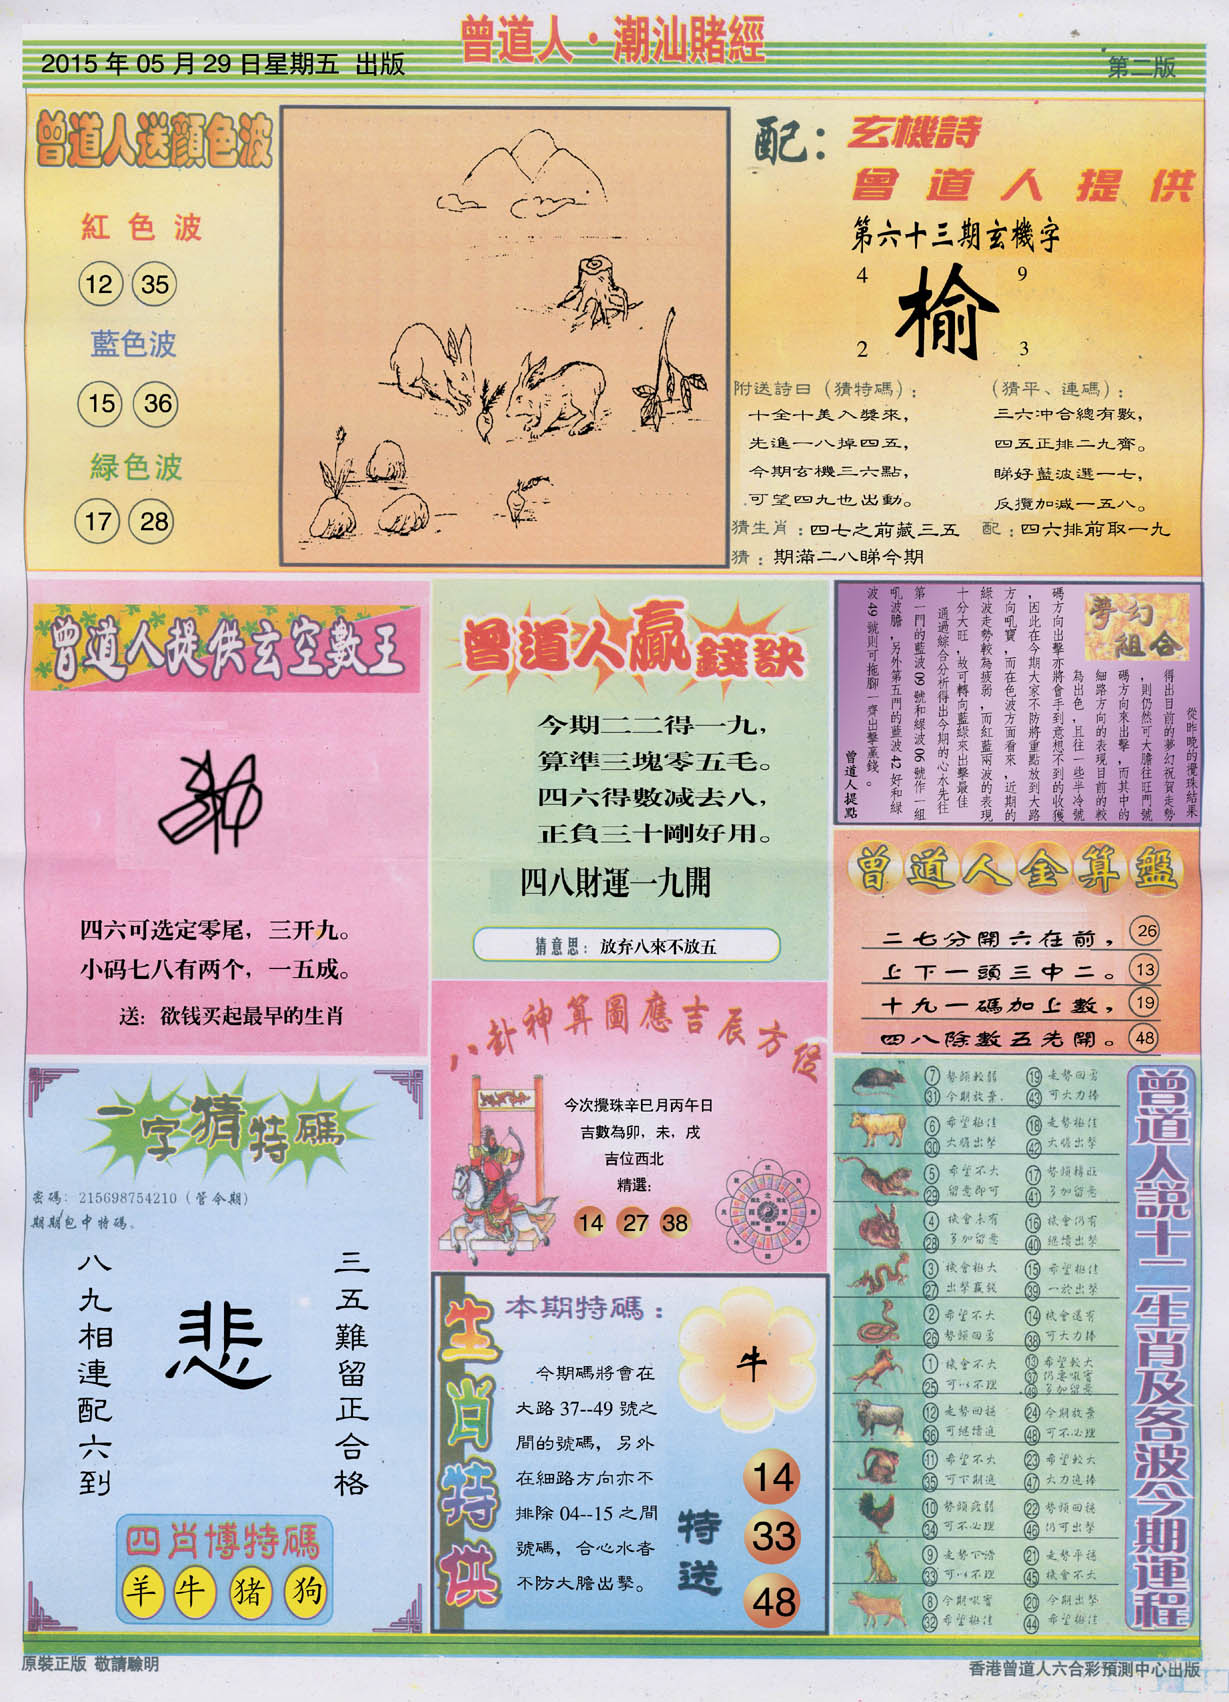 曾道人·潮汕賭經
2015年05月29日星期五 出版
第二版
曾道人送顏色波
紅色波
12 35
藍色波
15 36
緑色波
17 28
配：玄機詩
曾道人提供
第六十三期玄機字
4 9
榆
2 3
附送詩曰（猜特碼）：
十全十美入獎來，
先進一八掉四五，
今期玄機三六點，
可望四九也出動。
（猜平、連碼）：
三六冲合總有數，
四五正排二九齊。
睇好藍波選一七，
反攬加減一五八。
猜生肖：四七之前藏三五
配：四六排前取一九
猜：期滿二八睇今期
曾道人提供玄空數王
四六可选定零尾，三开九。
小码七八有两个，一五成。
送：欲钱买起最早的生肖
曾道人贏錢訣
今期二二得一九，
算準三塊零五毛。
四六得數減去八，
正負三十剛好用。
四八財運一九開
猜意思：放弃八來不放五
夢幻
組合
從昨晚的攪珠結果
得出目前的夢幻祝賀走勢
，則仍然可大膽往旺門號
碼方向來出擊，而其中的
細路方向的表現目前的較
為出色，且往一些半冷號
碼方向出擊亦將會手到意想不到的收獲
，因此在今期大家不防將重點放到大路
方向吼寶，而在色波方面看來，近期的
綠波走勢較為疲弱，而紅藍兩波的表現
十分大旺，故可轉向藍綠來出擊最佳
通過綜合分析得出今期的心水先往
第一門的藍波09號和绿波06號作一組
吼波膽，另外第五門的藍波42好和綠
波49號則可拖腳一齊出擊贏錢。
曾道人提點
曾道人金算盤
二七分開六在前，26
上下一頭三中二。13
十九一碼加上數，19
四八除數五先開。48
八卦神算圖應吉辰方位
今次攪珠辛巳月丙午日
吉數為卯，未，戌
吉位西北
精選：
14 27 38
一字猜特碼
密碼：215698754210（管今期）
期期包中特碼。
三五難留正合格
悲
八九相連配六到
四肖博特碼
羊 牛 猪 狗
生肖特供
本期特碼：
今期碼將會在
大路37--49號之
間的號碼，另外
在細路方向亦不
排除04--15之間
號碼，合心水者
不防大膽出擊。
牛
特送
14
33
48
曾道人説十二生肖及各波今期運程
7 勢頭較弱 19 走勢回勇
31 今期放棄 43 可大力捧
6 希望極佳 18 走勢極佳
30 大膽出擊 42 大膽出擊
5 希望不大 17 勢頭轉旺
29 留意即可 41 多加留意
4 機會未有 16 機會仍有
28 多加留意 40 繼續出擊
3 機會極大 15 希望極佳
27 出擊贏錢 39 一於出擊
2 希望不大 14 機會還有
26 勢頭回勇 38 可大力捧
1 機會不大 13 希望較大
25 可以不理 37 仍要吸實
49 多加留意
12 走勢回穩 24 今期放棄
36 可繼續追 48 可不必理
11 希望不大 23 希望較大
35 可下期追 47 大力追捧
10 勢頭疲弱 22 勢頭回穩
34 可不必理 46 仍可出擊
9 走勢下滑 21 走勢平穩
33 可以不理 45 機會不大
8 今期吸實 20 今期出擊
32 希望極佳 44 希望極佳
原裝正版 敬請驗明
香港曾道人六合彩預測中心出版